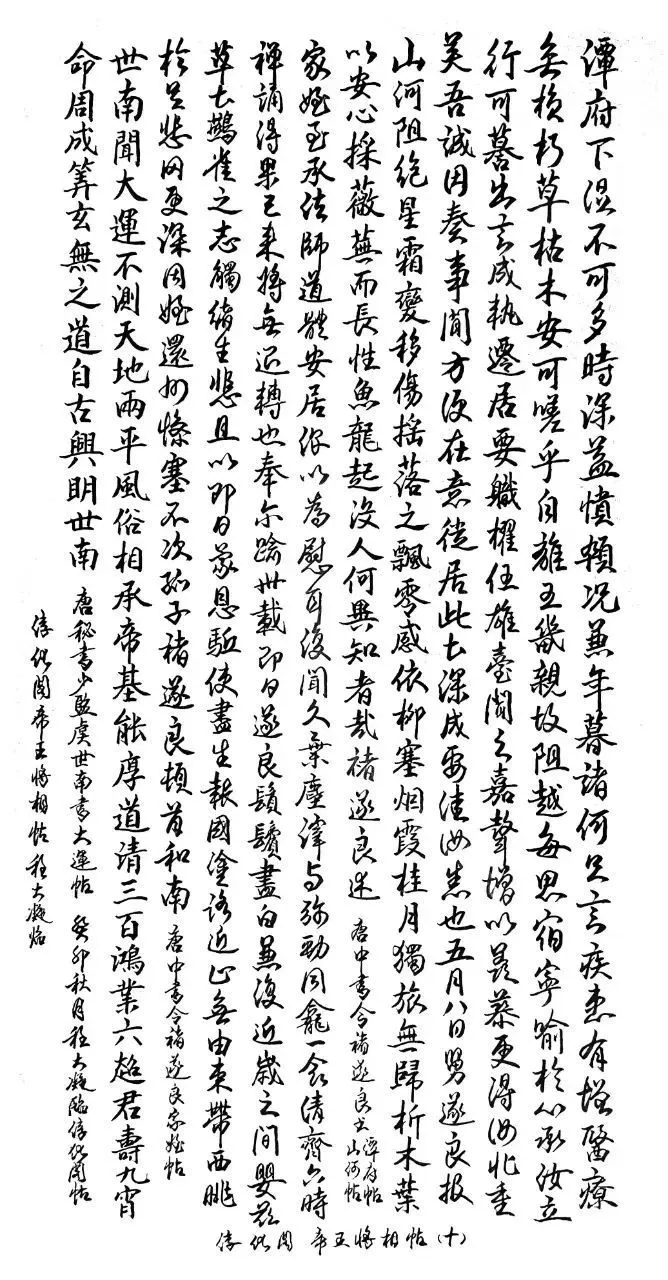 潭府下湿不可多時深益憒頓况兼年暮諸何足言疾患有增醫療
無損朽草枯木安可嗟乎自離王畿親故阻越每思宿寧喻於心承汝立
行可慕出言成執遷居要職櫂任雄臺聞之嘉聲增以景慕更得汝北重
美吾誠因奏事聞方便在意從居此士深成要佳汝悉也五月八日舅遂良报
山河阻絶星霜變移傷摇落之飄零感依柳塞烟霞桂月獨旅無歸折木葉
以安心採薇蕪而長性魚龍起没人何異知者哉褚遂良述 唐中書令褚遂良书 潭府帖 山河帖
家姪至承法師道體安居深以為慰耳復聞久棄塵滓与弥勒同龕一食清齊六時
禅誦得果已来將無退轉也奉尔踰卅載即日遂良鬚鬢盡白兼復近歲之間嬰兹
草土鷰雀之志觸緒生悲且以即日蒙恩驅使盡生報國塗路近止無由束帶西眺
於邑悲罔更深因姪還州慘塞不次孤子褚遂良頓首和南 唐中書令褚遂良家姪帖
世南聞大運不測天地兩平風俗相承帝基能厚道清三百鴻業六超君壽九霄
命周成筭玄無之道自古興明世南 唐秘書少監虞世南書大運帖 癸卯秋月程大凝臨淳化閣帖
淳化閣帝王將相帖程大凝焰
淳化閣 帝王將相帖(十)